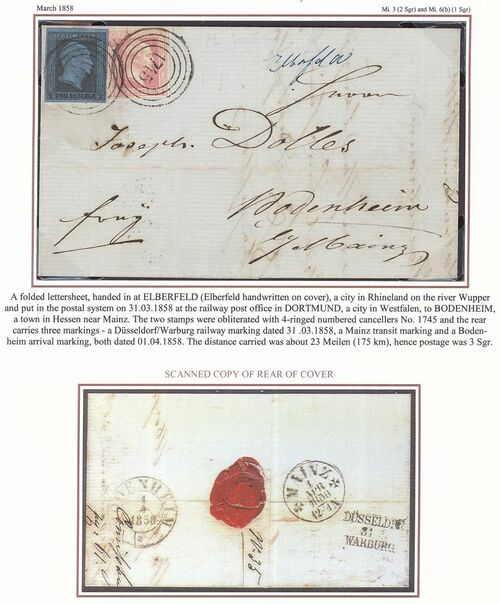 March 1858
Mi. 3 (2 Sgr) and Mi. 6(b) (1 Sgr)
ZWEI SILBERGR
Elberfeld
Joseph Dolles
Bodenheim
b/ Mainz
frey
A folded lettersheet, handed in at ELBERFELD (Elberfeld handwritten on cover), a city in Rhineland on the river Wupper
and put in the postal system on 31.03.1858 at the railway post office in DORTMUND, a city in Westfalen, to BODENHEIM,
a town in Hessen near Mainz. The two stamps were obliterated with 4-ringed numbered cancellers No. 1745 and the rear
carries three markings - a Düsseldorf/Warburg railway marking dated 31 .03.1858, a Mainz transit marking and a Boden-
heim arrival marking, both dated 01.04.1858. The distance carried was about 23 Meilen (175 km), hence postage was 3 Sgr.
SCANNED COPY OF REAR OF COVER
DENHEIM
1
4
1858
MAINZ
1
APR
1858
DÜSSELDF
31
WARBURG